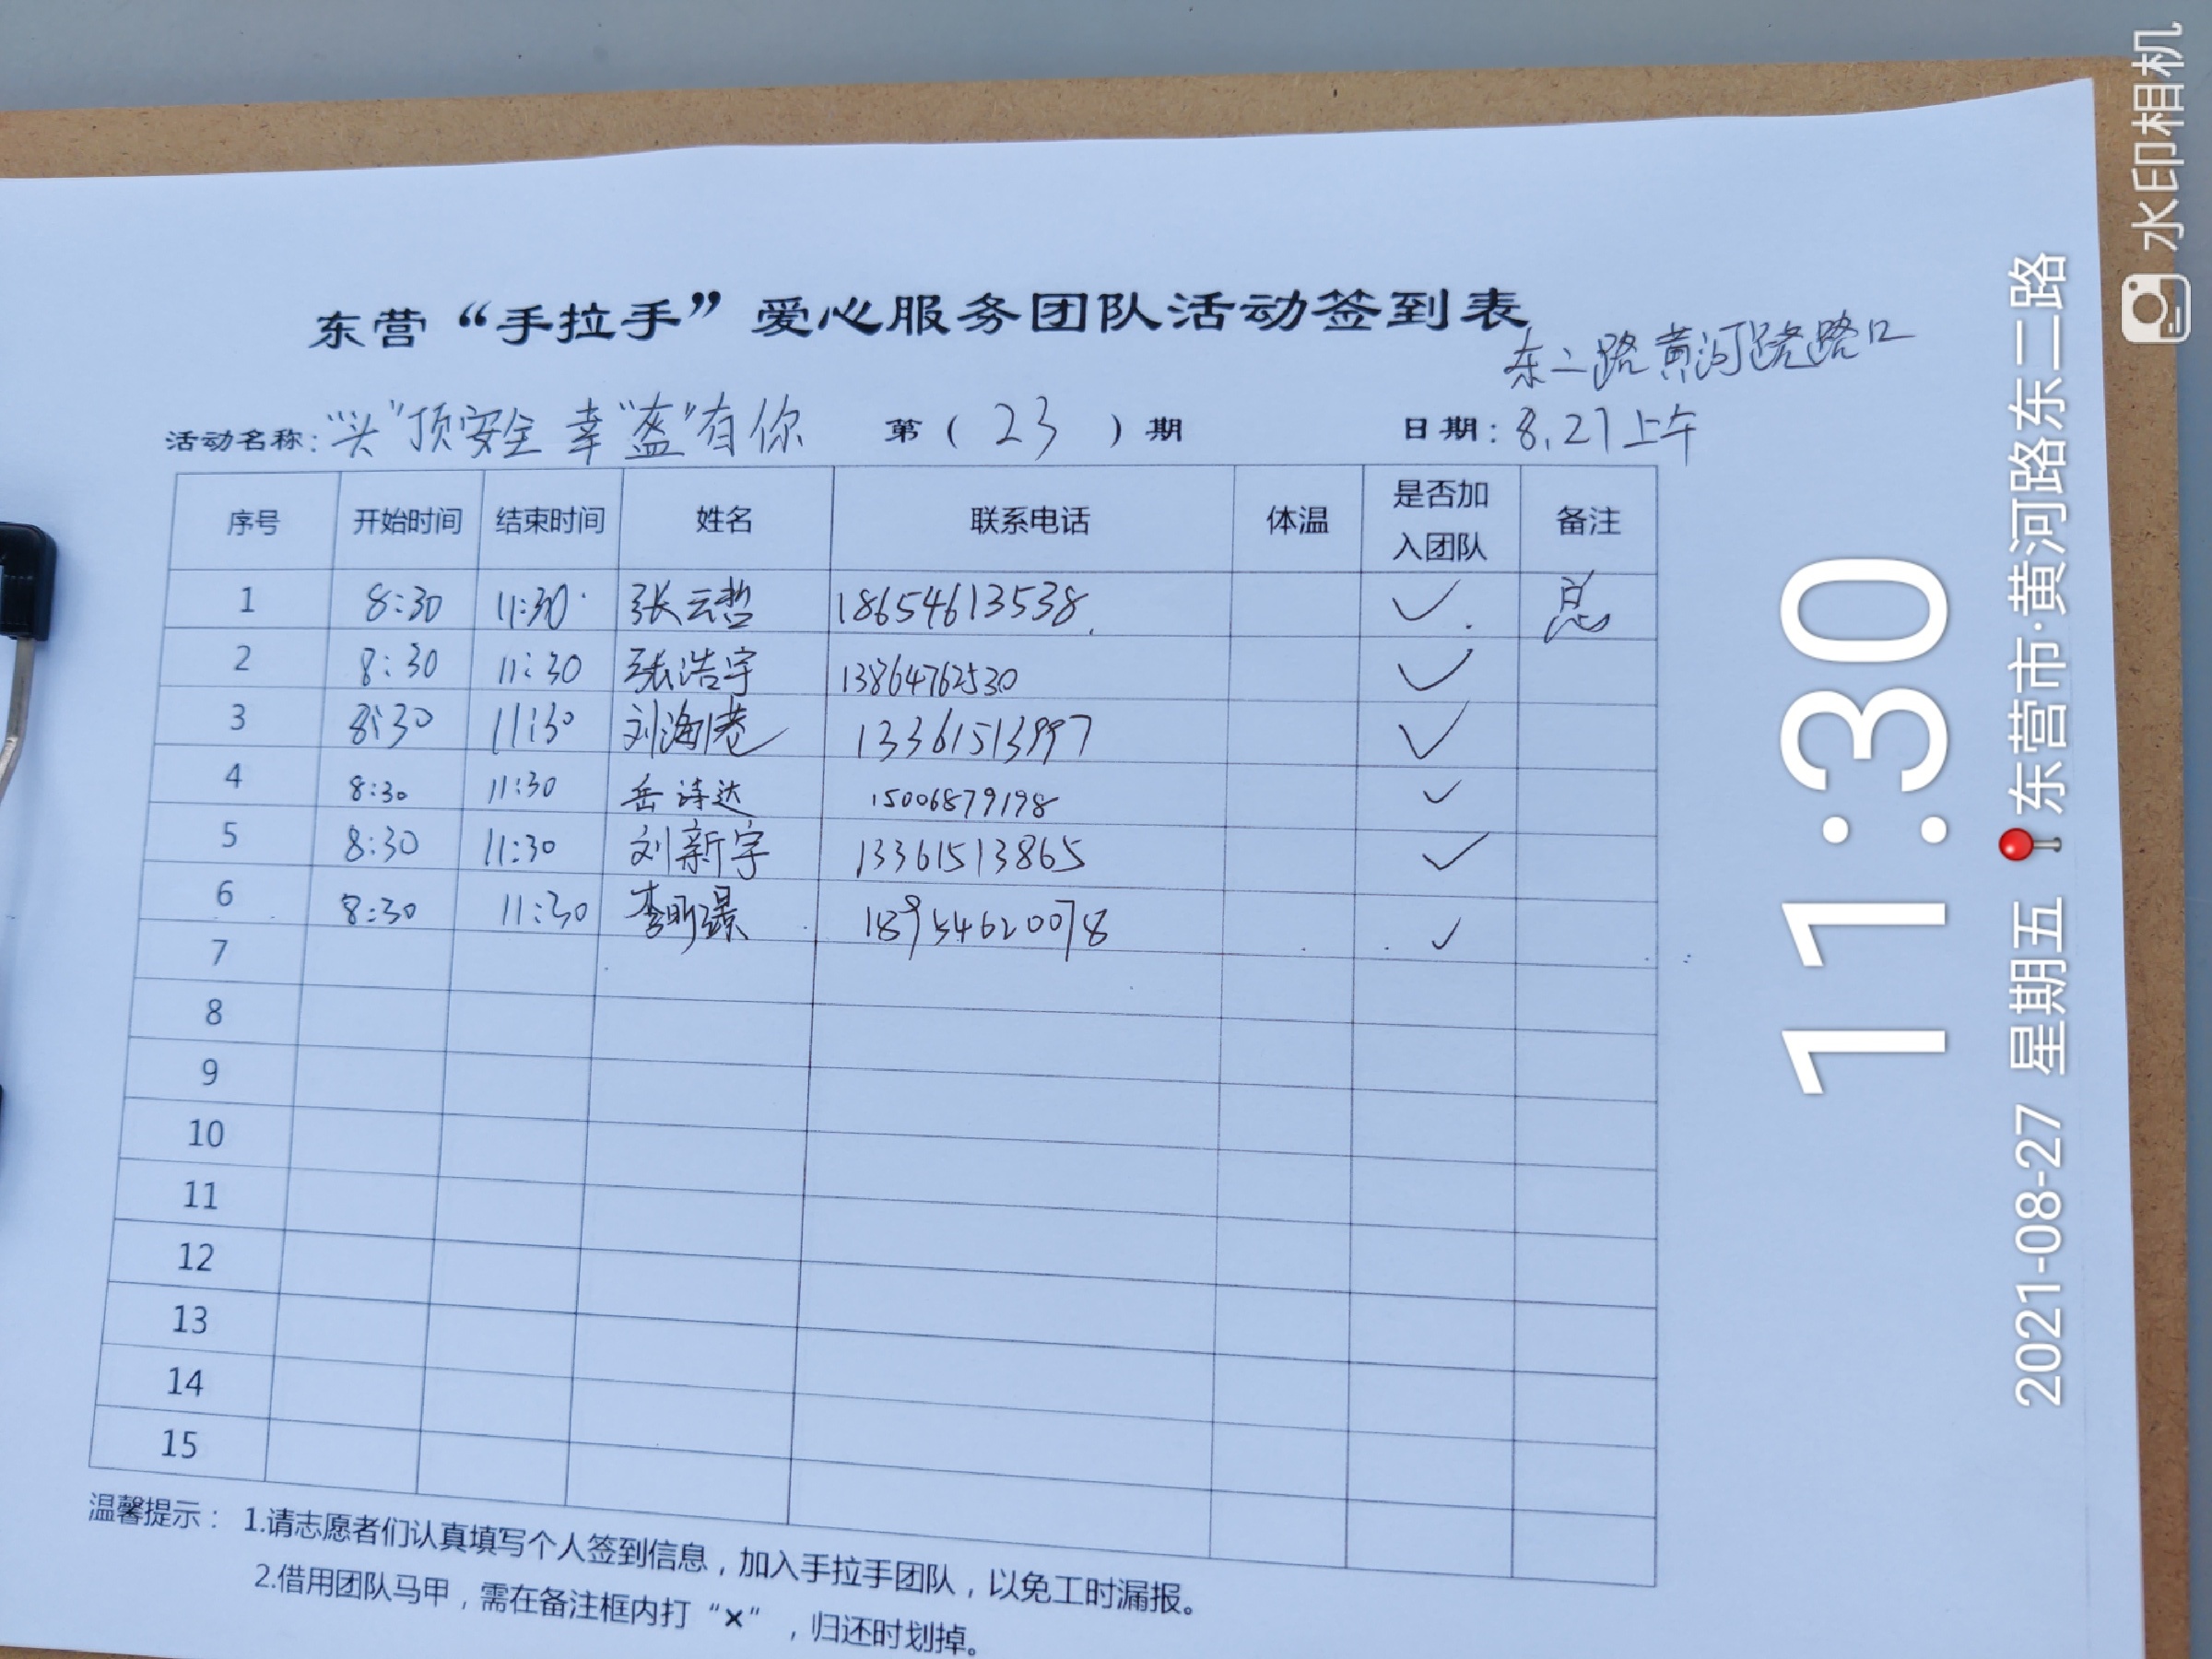 东营“手拉手”爱心服务团队活动签到表
东二路黄河路路口
活动名称:“头”顶安全 幸“盔”有你 第(23)期 日期:8.27上午
序号 开始时间 结束时间 姓名 联系电话 体温 是否加入团队 备注
1 8:30 11:30 张云哲 18654613538 ✓
2 8:30 11:30 张浩宇 13864762530 ✓
3 8:30 11:30 刘海港 13361513997 ✓
4 8:30 11:30 岳诗达 15006879198 ✓
5 8:30 11:30 刘新宇 13361513865 ✓
6 8:30 11:30 李明 18954620078 ✓
7
8
9
10
11
12
13
14
15
温馨提示:1.请志愿者们认真填写个人签到信息,加入手拉手团队,以免工时漏报。
2.借用团队马甲,需在备注框内打“×”,归还时划掉。
11:30
2021-08-27 星期五 东营市·黄河路东二路
水印相机